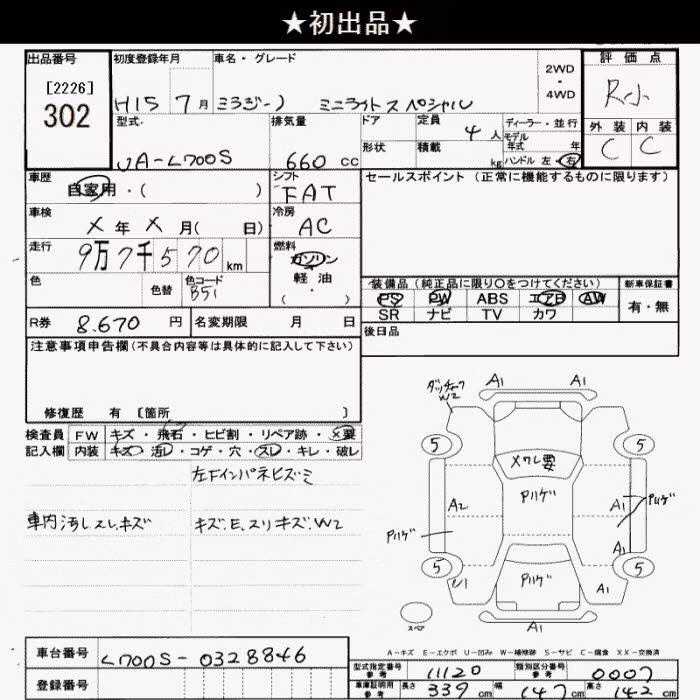 ★初出品★
出品番号 初度登録年月 車名・グレード 2WD・4WD 評価点
[2226]
302
H15 7月 ミラジーノ ミニライトスペシャル R小
型式 排気量 ドア 定員 4人 ディーラー・並行 外装 内装
UA-L700S 660cc 形状 積載 kg モデル年式 年 C C
ハンドル 左・右
車歴 自家用・( ) シフト FAT セールスポイント(正常に機能するものに限ります)
車検 X年X月( 日) 冷房 AC
走行 9万7千570km 燃料 ガソリン・軽油・( )
色 色替 色コード B51
装備品(純正品に限り○をつけてください) 新車保証書
PS PW ABS エアB AW 有・無
SR ナビ TV カワ
R券 8.670円 名変期限 月 日 後日品
注意事項申告欄(不具合内容等は具体的に記入して下さい)
修復歴 有 〔箇所 〕
検査員 FW キズ・飛石・ヒビ割・リペア跡・X要
記入欄 内装 キズ・汚レ・コゲ・穴・スレ・キレ・破レ
左Fインパネヒズミ
車内汚レスレ.キズ キズ.E.スリキズ.W2
W2
A1 A1
5 5
Xワレ要
A2 Pハゲ A1 Pハゲ
Pハゲ A1
5 5
U1 Pハゲ A1
スペア A1
A-キズ E-エクボ U-凹み W-補修跡 S-サビ C-腐食 XX-交換済
車台番号 L700S-0328846
型式指定番号 参考 11120 類別区分番号 参考 0007
登録番号 車庫証明用 参考 長さ 339cm 幅 147cm 高さ 142cm